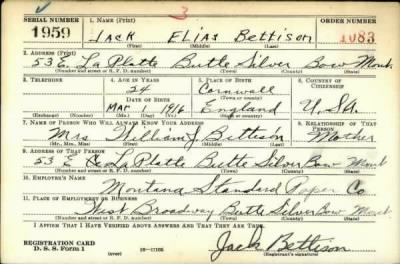 SERIAL NUMBER 1. NAME (Print) 3 ORDER NUMBER
1959 JACK ELIAS BETTISON 1083
(First) (Middle) (Last)
2. ADDRESS (Print)
53 E. La Platte Butte Silver Bow Mont.
(Number and street or R. F. D. number) (Town) (County) (State)
3. TELEPHONE 4. AGE IN YEARS 5. PLACE OF BIRTH 6. COUNTRY OF CITIZENSHIP
24 Cornwall
DATE OF BIRTH (Town or county)
Mar 1 1916 England U.S.A.
(Exchange) (Number) (Mo.) (Day) (Yr.) (State or country)
7. NAME OF PERSON WHO WILL ALWAYS KNOW YOUR ADDRESS 8. RELATIONSHIP OF THAT PERSON
Mrs William J Bettison Mother
(Mr., Mrs., Miss) (First) (Middle) (Last)
9. ADDRESS OF THAT PERSON
53 E La Platte Butte Silver Bow Mont
(Number and street or R. F. D. number) (Town) (County) (State)
10. EMPLOYER'S NAME
Montana Standard Paper Co
11. PLACE OF EMPLOYMENT OR BUSINESS
West Broadway Butte Silver Bow Mont
(Number and street or R. F. D. number) (Town) (County) (State)
I AFFIRM THAT I HAVE VERIFIED ABOVE ANSWERS AND THAT THEY ARE TRUE.
REGISTRATION CARD
D. S. S. Form 1 (over) Jack Bettison
(Registrant's signature)